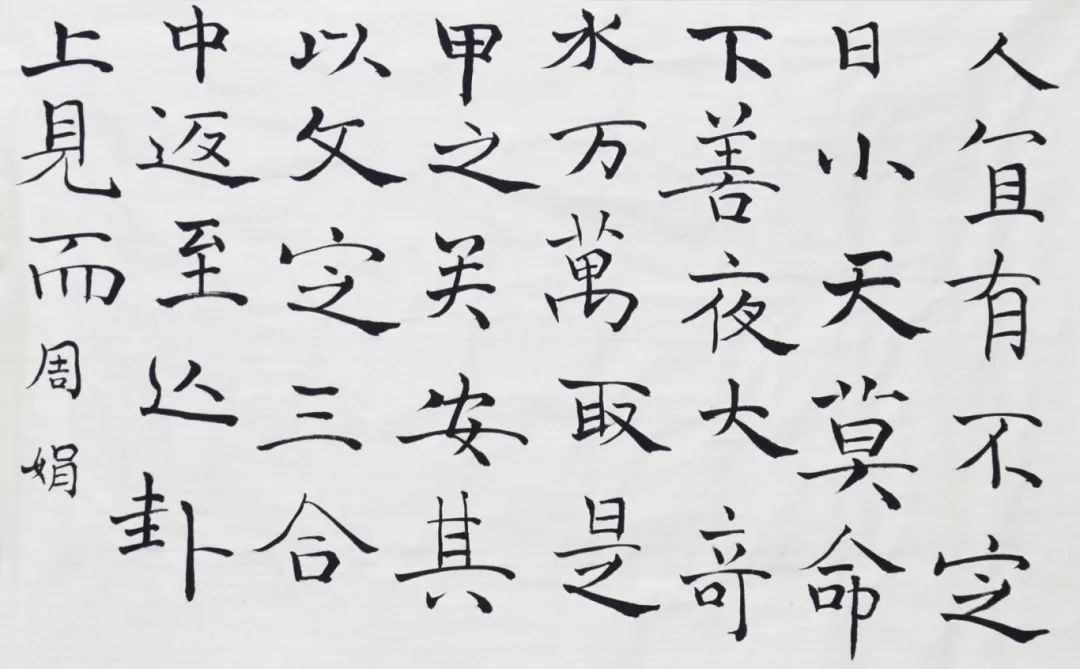 人宜有不定
日小天莫命
下善夜大奇
水万萬取是
甲之关安其
以攵定三合
中返至卦
上見而
周娟